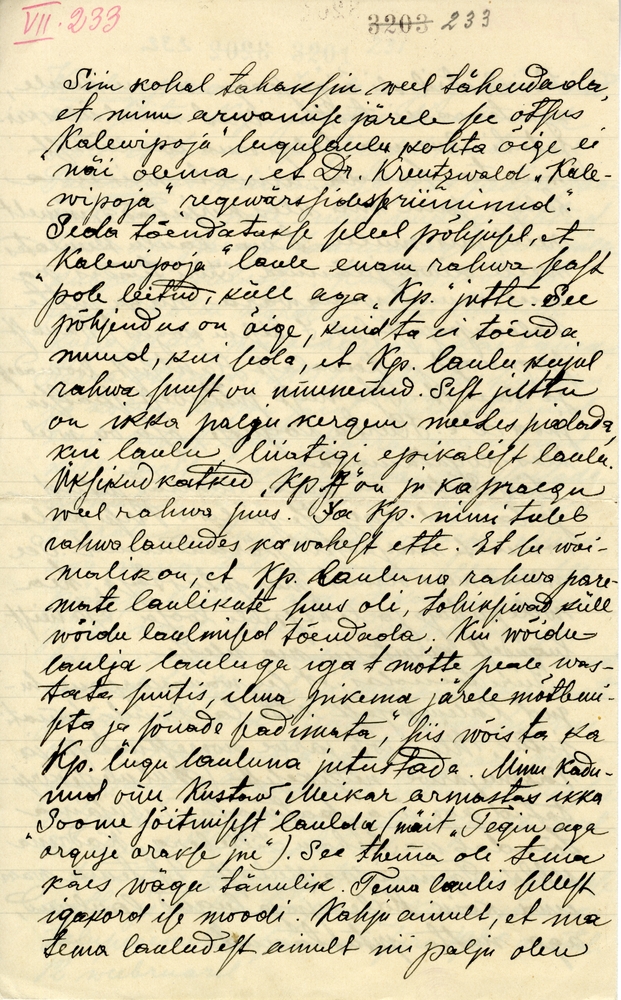 VII. 233
3203 233
Siin kohal tahaksin weel tähendada,
et minu arwamise järele see otsus
"Kalewipoja" lugulaulu kohta õige ei
näi olema, et Dr. Kreutzwald "Kale-
wipoja" regewärssidesse
Seda tõendatakse sellel põhjusel, et
"Kalewipoja" laule enam rahwa seast
pole leitud, küll aga "Kp." jutte. See
põhjendus on õige, kuid ta ei tõenda
muud, kui seda, et Kp. laulu kujul
rahwa suust on
on ikka palju kergem meeles pidada,
kui laulu, liiatigi epikalist laulu.
Üksikud katked "Kp." on ju ka praegu
weel rahwa suus. Ja Kp. nimi tuleb
rahwalauludes ka wahest ette. Et see wõi-
malik on, et Kp. lauluna rahwa pare-
mate laulikute suus oli, tohiksiwad küll
wõidu laulmised tõendada. Kui wõidu-
laulja lauluga igat mõtte peale was-
tata suutis, ilma pikema järelemõtlemi-
seta ja "sõnade seadimata", siis wõis ta ka
Kp. lugu lauluna jutustada. Minu kadu-
nud onu Kustaw Meikar armastas ikka
"Soome sõitmisest" laulda (näit. "Tegin aga
orguje orakse jne"). See thema oli tema
käes wäga tänulik. Tema laulis sellest
igakord ise moodi. Kahju ainult, et ma
tema lauludest ainult nii palju olen